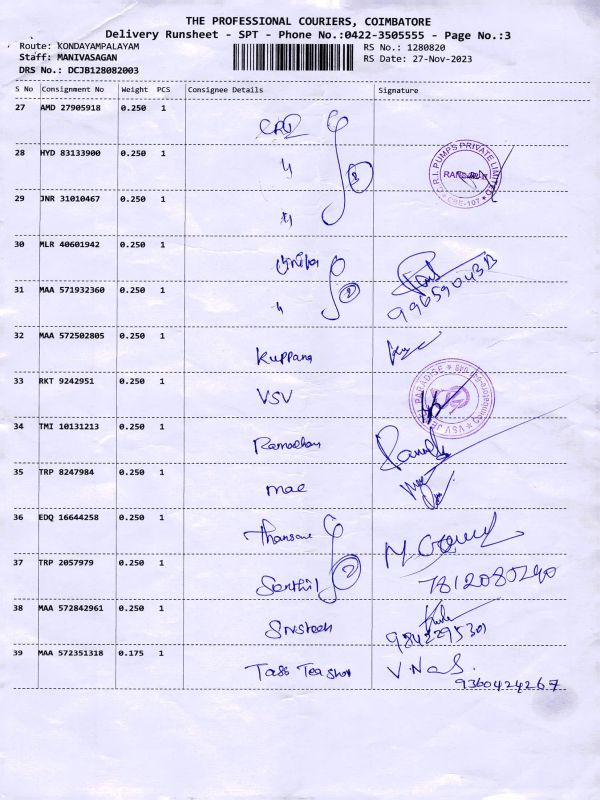 THE PROFESSIONAL COURIERS, COIMBATORE
Delivery Runsheet - SPT - Phone No.:0422-3505555 - Page No.:3
Route: KONDAYAMPALAYAM RS No.: 1280820
Staff: MANIVASAGAN RS Date: 27-Nov-2023
DRS No.: DCJB128082003
S No Consignment No Weight PCS Consignee Details Signature
27 AMD 27905918 0.250 1 CRI
28 HYD 83133900 0.250 1 " C.R.I. PUMPS PRIVATE LIMITED CBE-107
29 JNR 31010467 0.250 1 "
30 MLR 40601942 0.250 1
31 MAA 571932360 0.250 1 "
32 MAA 572502805 0.250 1 Kuppana
33 RKT 9242951 0.250 1 VSV
34 TMI 10131213 0.250 1
35 TRP 8247984 0.250 1 mac
36 EDQ 16644258 0.250 1
37 TRP 2057979 0.250 1 Senthil 2
38 MAA 572842961 0.250 1 9842295301
39 MAA 572351318 0.175 1 Tass Tea shop 9360424267